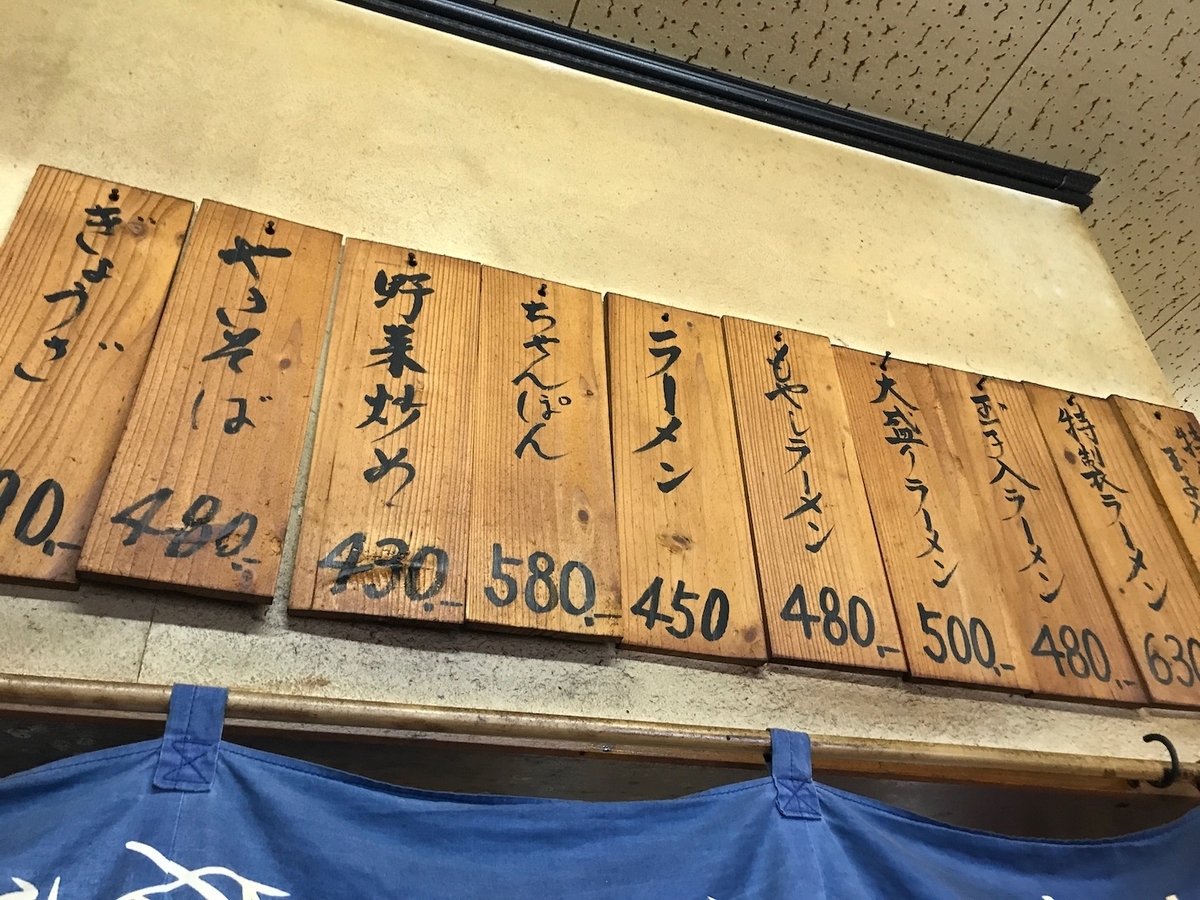 ぎょうざ
90.-
やきそば
480.-
野菜炒め
430.-
ちゃんぽん
580.-
ラーメン
450
もやしラーメン
480.-
大盛りラーメン
500.-
玉子入ラーメン
480.-
特製ラーメン
630
特